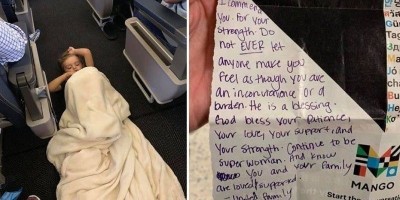 I commend
you. For your
strength. Do
not EVER let
anyone make you
feel as though you are
an inconvenience or a
burden. He is a blessing.
God bless your patience,
your love, your support, and
your strength. Continue to be
super woman. And know
you and your family
are loved & supported.
- United Family
MANGO